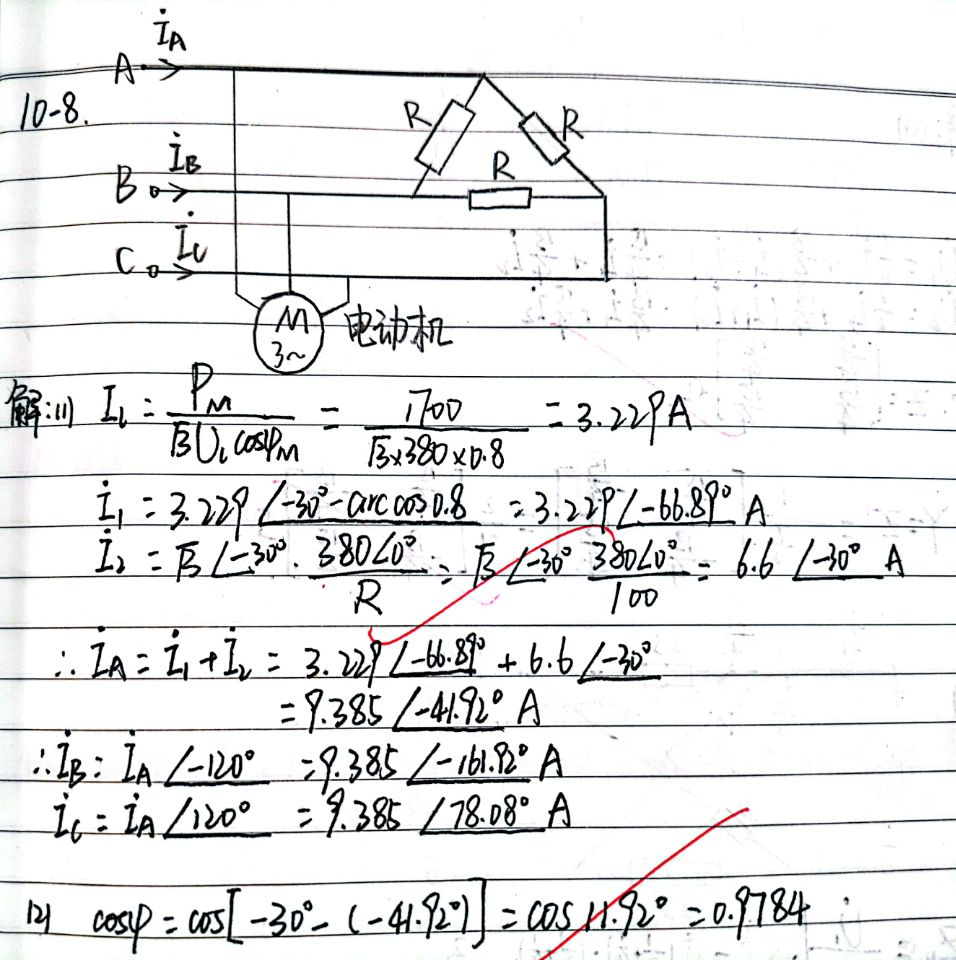 İA
A
10-8.
R
R
İB
R
B
İC
C
M
3~
电动机
解:(1) I₁ = P_M / (√3 U_L cosφ_M) = 1700 / (√3×380×0.8) = 3.229A
İ₁ = 3.229∠-30°-arccos0.8 = 3.229∠-66.89° A
İ₂ = √3∠-30° · 380∠0° / R = √3∠-30° 380∠0° / 100 = 6.6∠-30° A
∴ İA = İ₁ + İ₂ = 3.229∠-66.89° + 6.6∠-30°
= 9.385∠-41.92° A
∴ İB = İA∠-120° = 9.385∠-161.92° A
İC = İA∠120° = 9.385∠78.08° A
(2) cosφ = cos[-30°-(-41.92°)] = cos11.92° = 0.9784